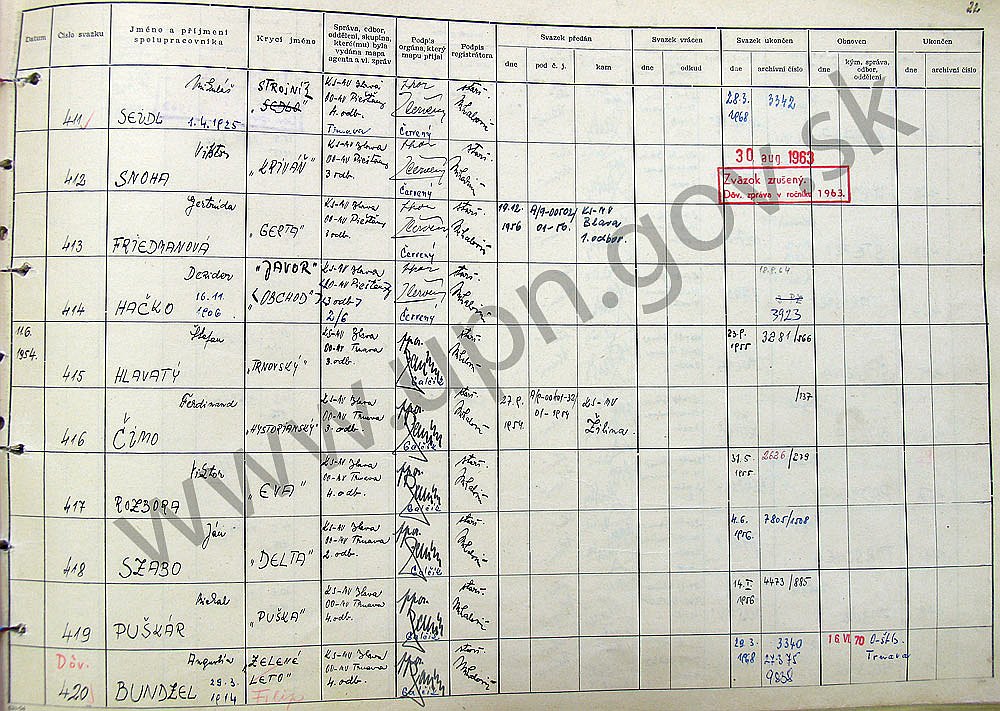 22
Datum
Číslo svazku
Jméno a příjmení
spolupracovníka
Krycí jméno
Správa, odbor,
oddělení, skupina,
které(mu) byla
vydána mapa
agenta a vl. zpráv
Podpis
orgána, který
mapu přijal
Podpis
registrátora
Svazek předán
dne
pod č. j.
kam
Svazek vrácen
dne
odkud
Svazek ukončen
dne
archivní číslo
Obnoven
dne
kým, správa,
odbor,
oddělení
Ukončen
dne
archivní číslo
411
Mikuláš
SEIDL 1.4.1925
STROJNÍK
"SEDLO"
KS-MV Blava
OO-MV Piešťany
4. odb.
Trnava
Červený
28.3.
1968
3342
412
Viktor
SNOHA
„KRIVÁŇ"
KS-MV Blava
OO-MV Piešťany
3 odb.
Červený
30 aug 1963
Zväzok zrušený.
Dôv. zpráva v ročníku 1963.
413
Gertrúda
FRIEDMANOVÁ
„GERTA"
KS-MV Blava
OO-MV Piešťany
3 odb.
Červený
19.12.
1956
A/9-00502/
01-56.
KS-MV
Blava
1. odbor.
414
Dezider
HAČKO 16.11.
1906
"JAVOR"
„OBCHOD"
KS-MV Blava
OO-MV Piešťany
3 odb
2/6
Červený
3923
11.6.
1954.
415
Štefan
HLAVATÝ
„TRNOVSKÝ"
KS-MV Blava
OO-MV Trnava
3. odb.
ppor.
Galčík
23.9.
1955
3281/566
416
Ferdinand
ČIMO
„HYSTORIANSKÝ"
KS-MV Blava
OO-MV Trnava
3. odb.
ppor.
Galčík
27.9.
1954.
A/9-00101-32/
01-1954
KS-MV
Žilina.
/137
417
Viktor
ROZBORA
„EVA"
KS-MV Blava
OO-MV Trnava
4. odb.
ppor.
Galčík
31.5.
1955
2626/279
418
Ján
SZABO
„DELTA"
KS-MV Blava
OO-MV Trnava
2. odb.
ppor.
Galčík
4.6.
1956.
7805/1508
419
Michal
PUŠKÁR
„PUŠKA"
KS-MV Blava
OO-MV Trnava
4. odb.
ppor.
Galčík
14.I
1956
4473/885
Dôv.
420
Augustín
BUNDZEL 29.3.
1914
„ZELENÉ
LETO"
Filip
KS-MV Blava
OO-MV Trnava
4. odb.
ppor.
Galčík
29.3.
1968
3340
27375
9838
16 VI. 70
O-ŠtB.
Trnava
www.upn.gov.sk